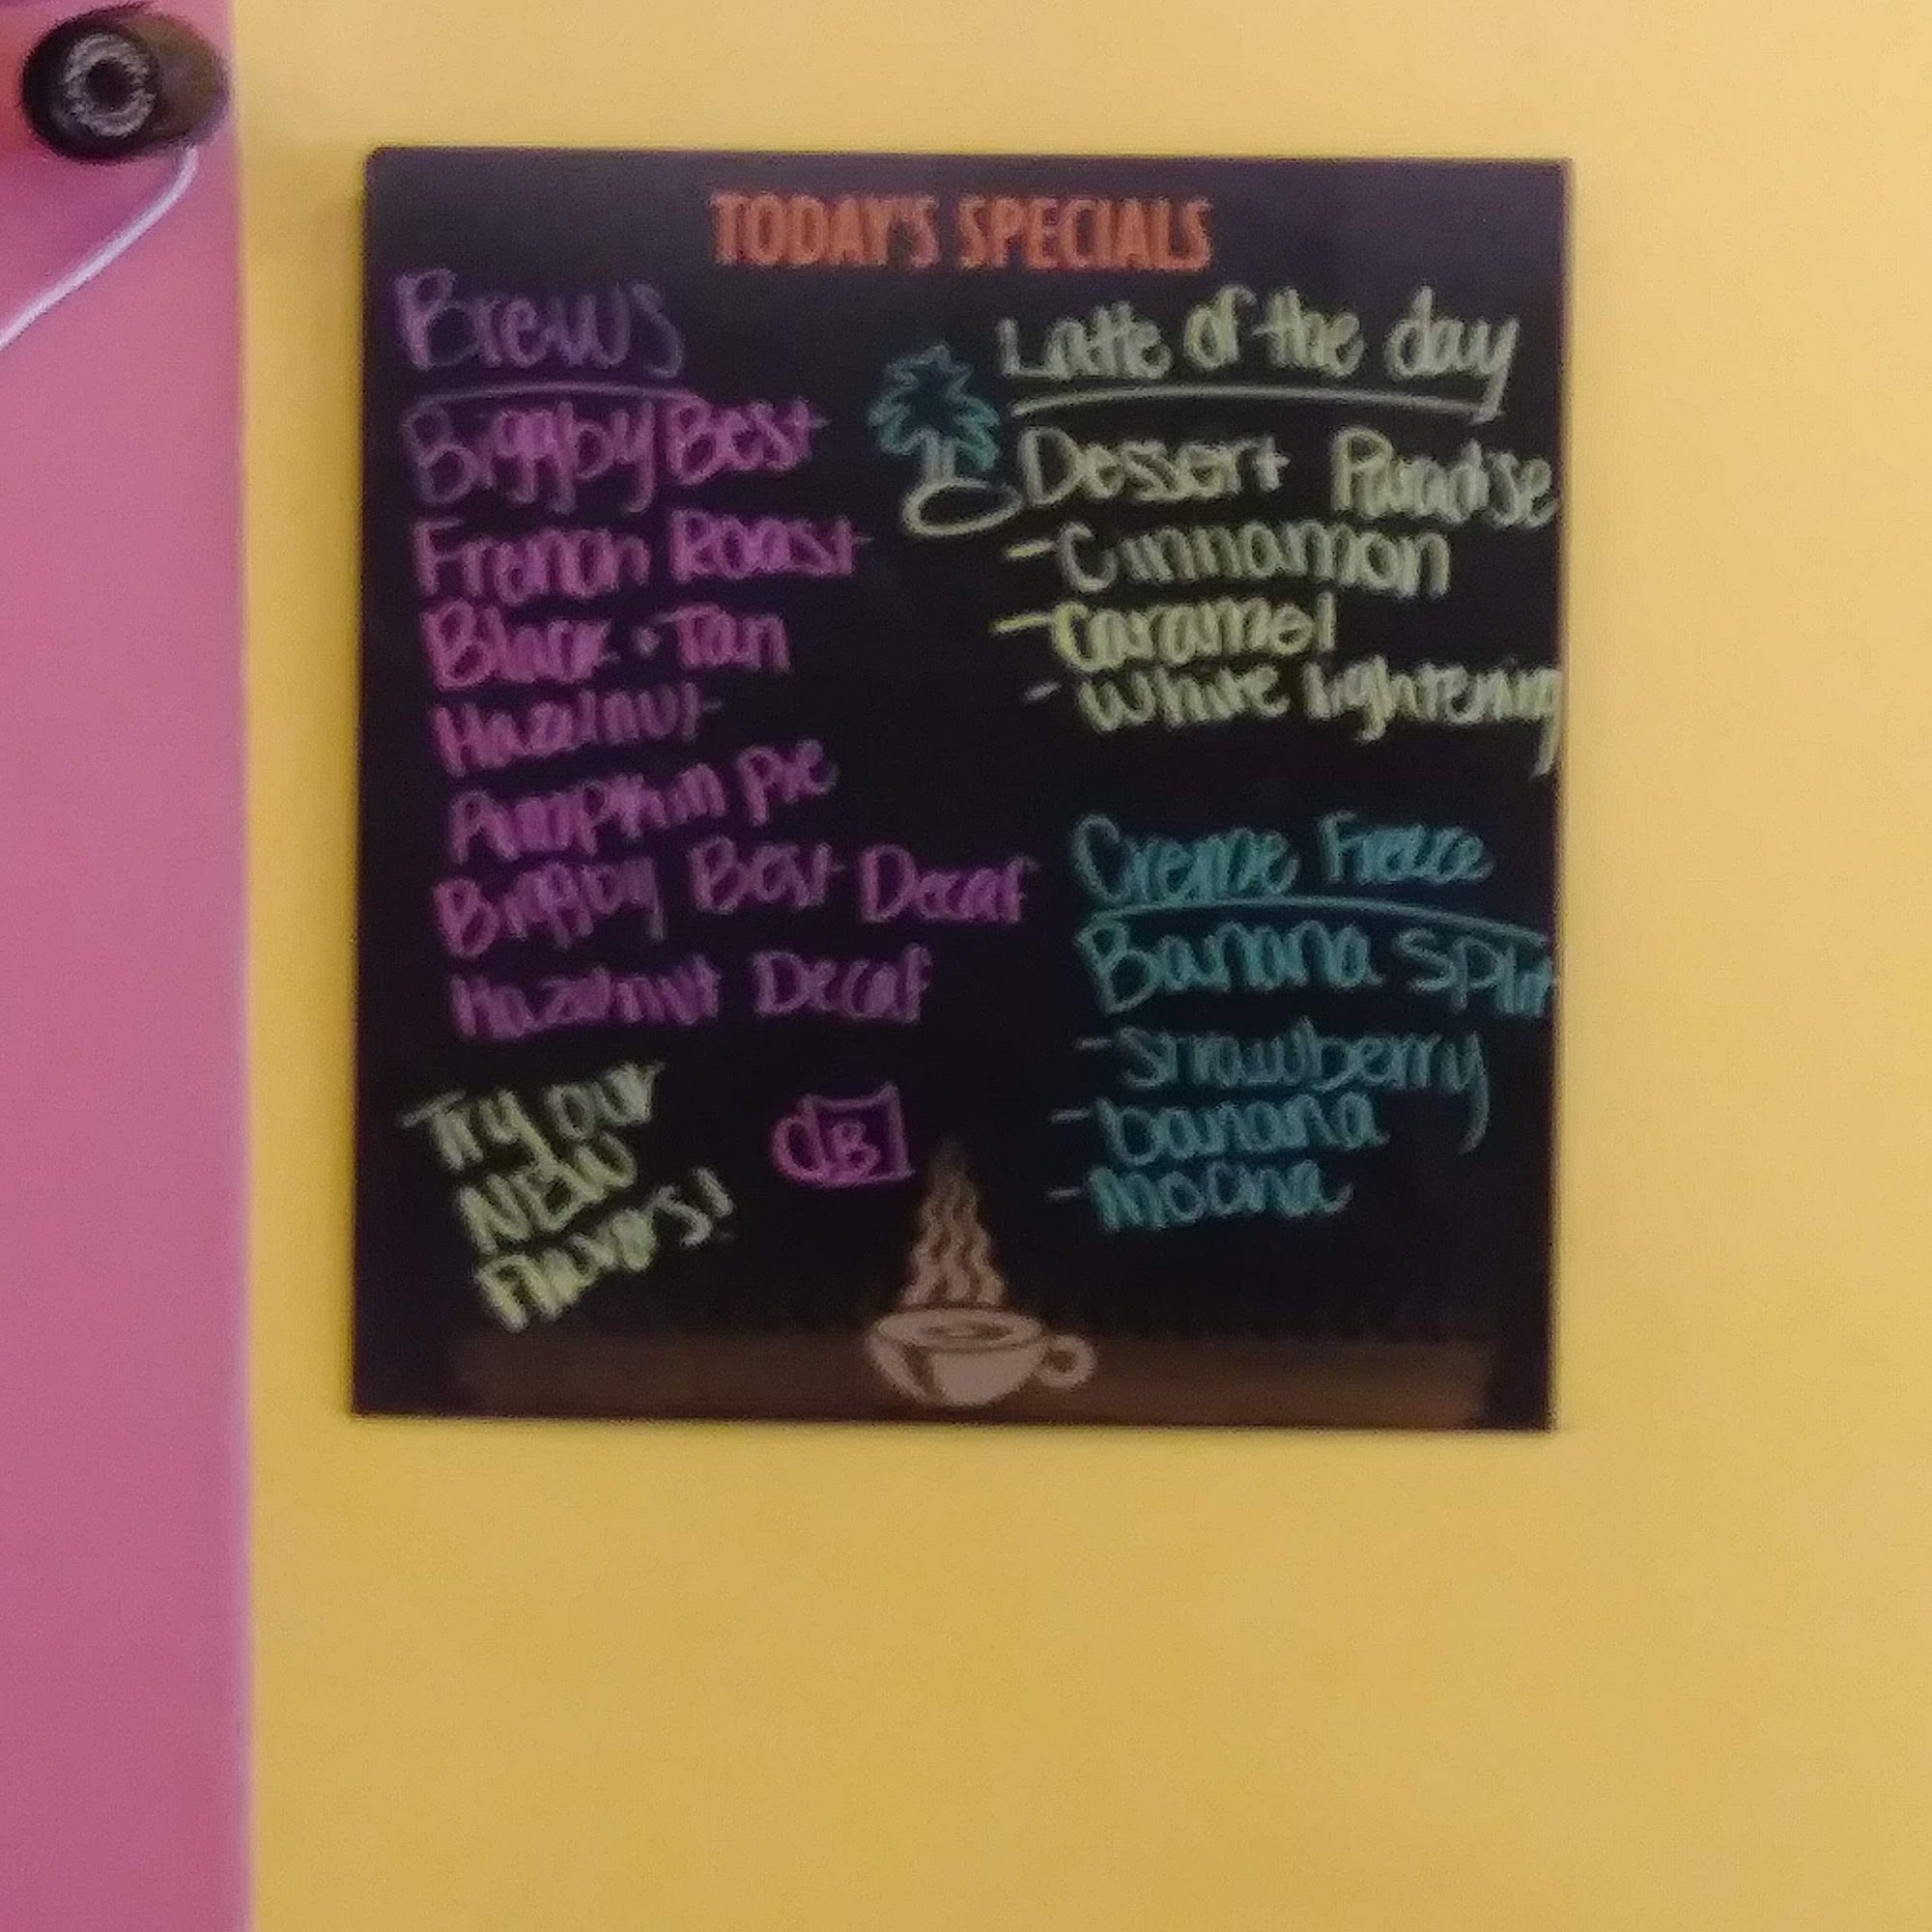 TODAY'S SPECIALS
Brews
Biggby Best
French Roast
Black • Tan
Hazelnut
Pumpkin Pie
Biggby Best Decaf
Hazelnut Decaf
Try our
NEW
Flavors!
B
Latte of the day
Dessert Paradise
-Cinnamon
-Caramel
-White lightening
Creme Freeze
Banana Split
-Strawberry
-banana
-Mocha